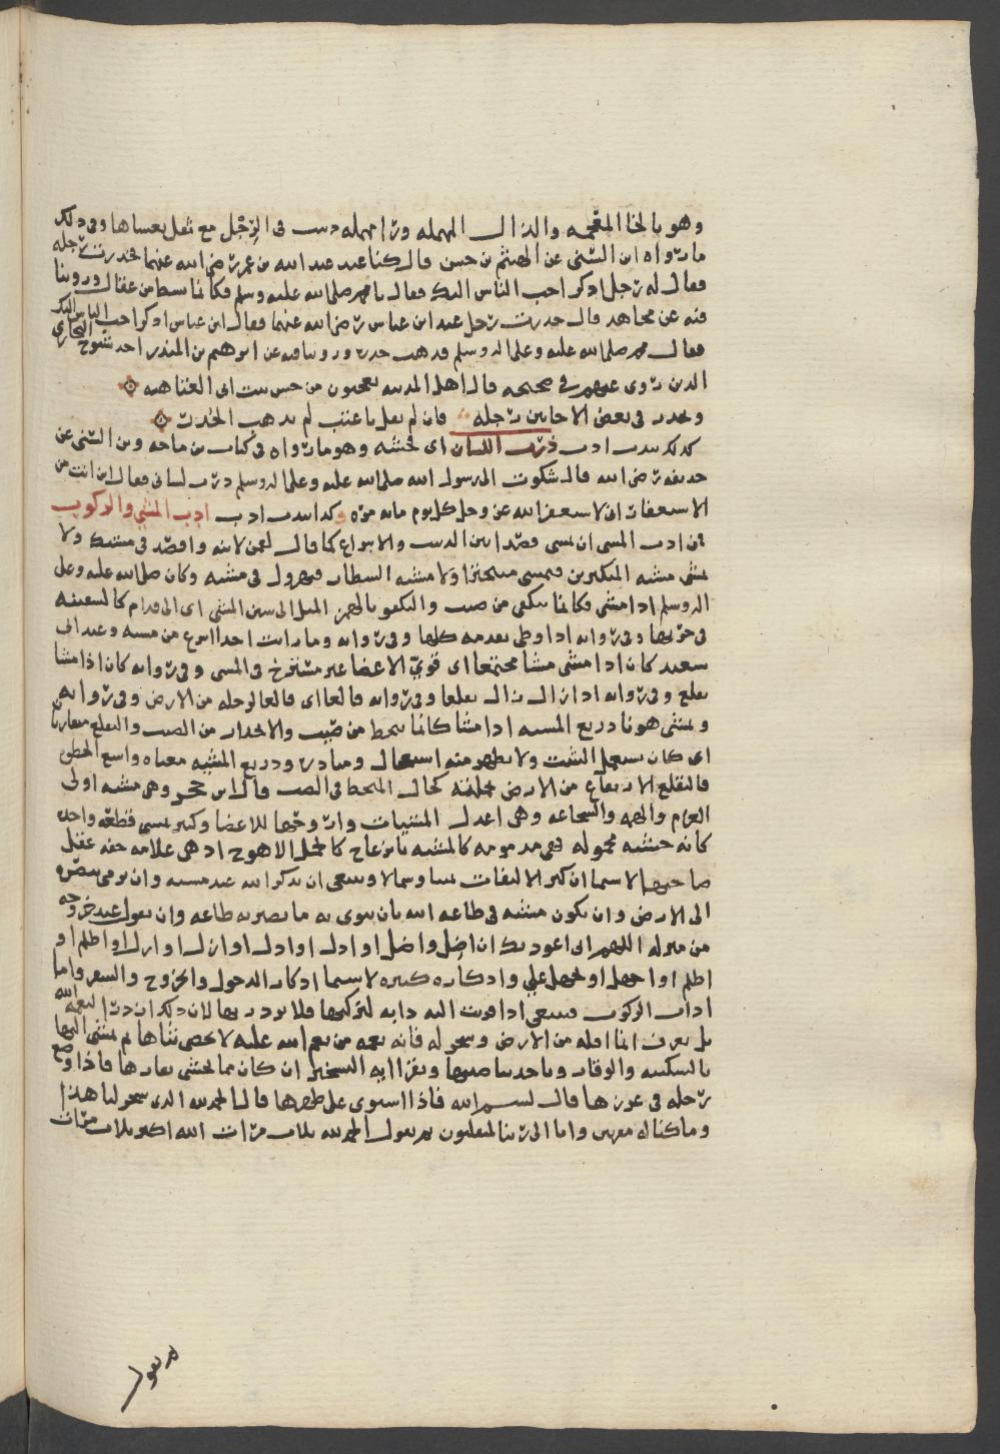 وهو بالخا المعجمه والدال المهمله ورا مهمله دبيب فى الرجل مع ثقل يغشاها وفى ذلك
مارواه ابن السنى عن الهيثم بن حنش قال كنا عند عبد الله بن عمر رضى الله عنهما فخدرت رجله
فقال له رجل اذكر احب الناس اليك فقال يا محمد صلى الله عليه وسلم فكانما نشط من عقال وروينا
فيه عن مجاهد قال خدرت رجل عند ابن عباس رضى الله عنهما فقال ابن عباس اذكر احب الناس اليك
فقال محمد صلى الله عليه وعلى اله وسلم فذهب خدره وروينا فيه عن ابرهيم بن المنذر احد شيوخ البخارى
الذين روى عنهم فى صحيحه قال اهل المدينه يعجبون من حسن بيت ابى العتاهيه
وتخدر فى بعض الاحايين رجله فان لم يقل يا عتب لم يذهب الخدر
كذلك يندب ادب ذرب اللسان اى فحشه وهو مارواه فى كتاب بن ماجه وبن السنى عن
حذيفه رضى الله قال شكوت الى رسول الله صلى الله عليه وعلى اله وسلم ذرب لسانى فقال اين انت من
الاستغفار انى لاستغفر الله عز وجل كل يوم مايه مره وكذا يندب ادب ادب المشى والركوب
فمن ادب المشى ان يمشى قصدا بين الدبيب والاسراع كما قال لقمن لابنه واقصد فى مشيك ولا
يمشى مشيه المتكبرين فيمشى متبخترا ولا مشيه الشطار فيهرول فى مشيه وكان صلى الله عليه وعلى
اله وسلم اذا مشى فكانما يتكفى من صبب والتكفو بالهمز الميل الى سنن المشى اى الى قدام كالسفينه
فى جريها وفى روايه اذا وطى بقدمه كلها وفى روايه وما رايت احدا اسرع من مشيه وعند ابن
سعد كان اذا مشى مشا مجتمعا اى قوى الاعضا غير مسترخ فى المشى وفى روايه كان اذا مشا
تقلع وفى روايه اذا زال زال تقلعا وفى روايه قالعا اى قالعا لرجله من الارض وفى روايه
ويمشى هونا ذريع المشيه اذا مشا كانما ينحط من صبب والانحدار من الصبب والتقلع متقاربان
اى كان يستعمل التثبت ولا يظهر منه استعجال ومبادره وذريع المشيه معناه واسع الخطو
فالتقلع الارتفاع من الارض بجملته كحال المنحط فى الصبب قال ابن حجر وهى مشيه اولى
العزم والهمه والشجاعه وهى اعدل المشيات واروحها للاعضا وكثير يمشى قطعه واحده
كانه خشبه محموله فهى مذمومه كالمشيه بانزعاج كالجمل الاهوج اذ هى علامه خفه عقل
صاحبها لا سيما ان كثر الالتفات يمينا وشمالا وينبغى ان يذكر الله عند مشيه وان يرمى ببصره
الى الارض وان يكون مشيه فى طاعه الله بان ينوى به ما يصيره طاعه وان يقول عند خروجه
من منزله اللهم انى اعوذ بك ان اضل واضل او اذل او اذل او ازل او ازل او اظلم او
اظلم او اجهل او يجهل على واذكاره كثيره لا سيما اذكار الدخول والخروج والسفر واما
اداب الركوب فينبغى اذا قربت اليه دابه ليركبها فلا يزدريها لان ذلك ازدرا لنعمه الله
بل يعرف انما اقله من الارض وسخر له فانه نعمه من نعم الله عليه لا يحصى ثناها ثم يمشى اليها
بالسكينه والوقار وياخذ بناصيتها ويقرا ايه التسخير ان كان مما يخشى نفارها فاذا وضع
رجله فى غرزها قال بسم الله فاذا استوى على ظهرها قال الحمد لله الذى سخر لنا هذا
وما كنا له مقرنين وانا الى ربنا لمنقلبون ثم يقول الحمد لله ثلاث مرات الله اكبر ثلاث مرات
ثم يقول